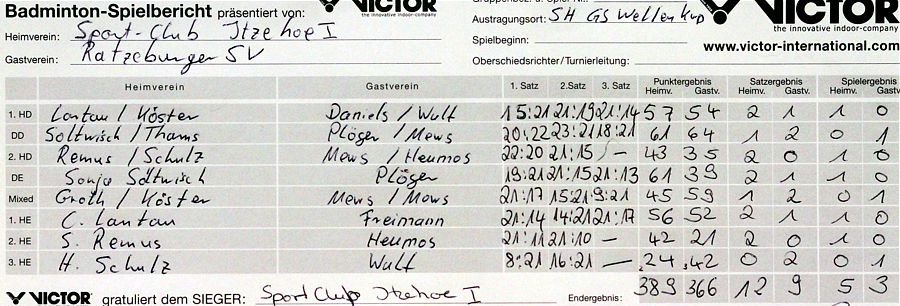 Badminton-Spielbericht präsentiert von: VICTOR the innovative indoor-company
Heimverein: Sport-Club Itzehoe I
Gastverein: Ratzeburger SV
VICTOR the innovative indoor-company
Austragungsort: SH GS Wellenkp
Spielbeginn:
www.victor-international.com
Oberschiedsrichter/Turnierleitung:
Heimverein Gastverein 1. Satz 2.Satz 3. Satz Punktergebnis Heimv. Gastv. Satzergebnis Heimv. Gastv. Spielergebnis Heimv. Gastv.
1. HD Lantau / Köster Daniels / Wulf 15:21 21:19 21:14 57 54 2 1 1 0
DD Soltwisch / Thams Plöger / Mews 20:22 23:21 18:21 61 64 1 2 0 1
2. HD Remus / Schulz Mews / Heumos 22:20 21:15 / — 43 35 2 0 1 0
DE Sonja Soltwisch Plöger 19:21 21:15 21:13 61 39 2 1 1 0
Mixed Groth / Köster Mews / Mews 21:17 15:21 9:21 45 59 1 2 0 1
1. HE C. Lantau Freimann 21:14 14:21 21:17 56 52 2 1 1 0
2. HE S. Remus Heumos 21:11 21:10 — 42 21 2 0 1 0
3. HE H. Schulz Wulf 8:21 16:21 — 24 42 0 2 0 1
VICTOR gratuliert dem SIEGER: Sport Club Itzehoe I Endergebnis: 389 366 12 9 5 3